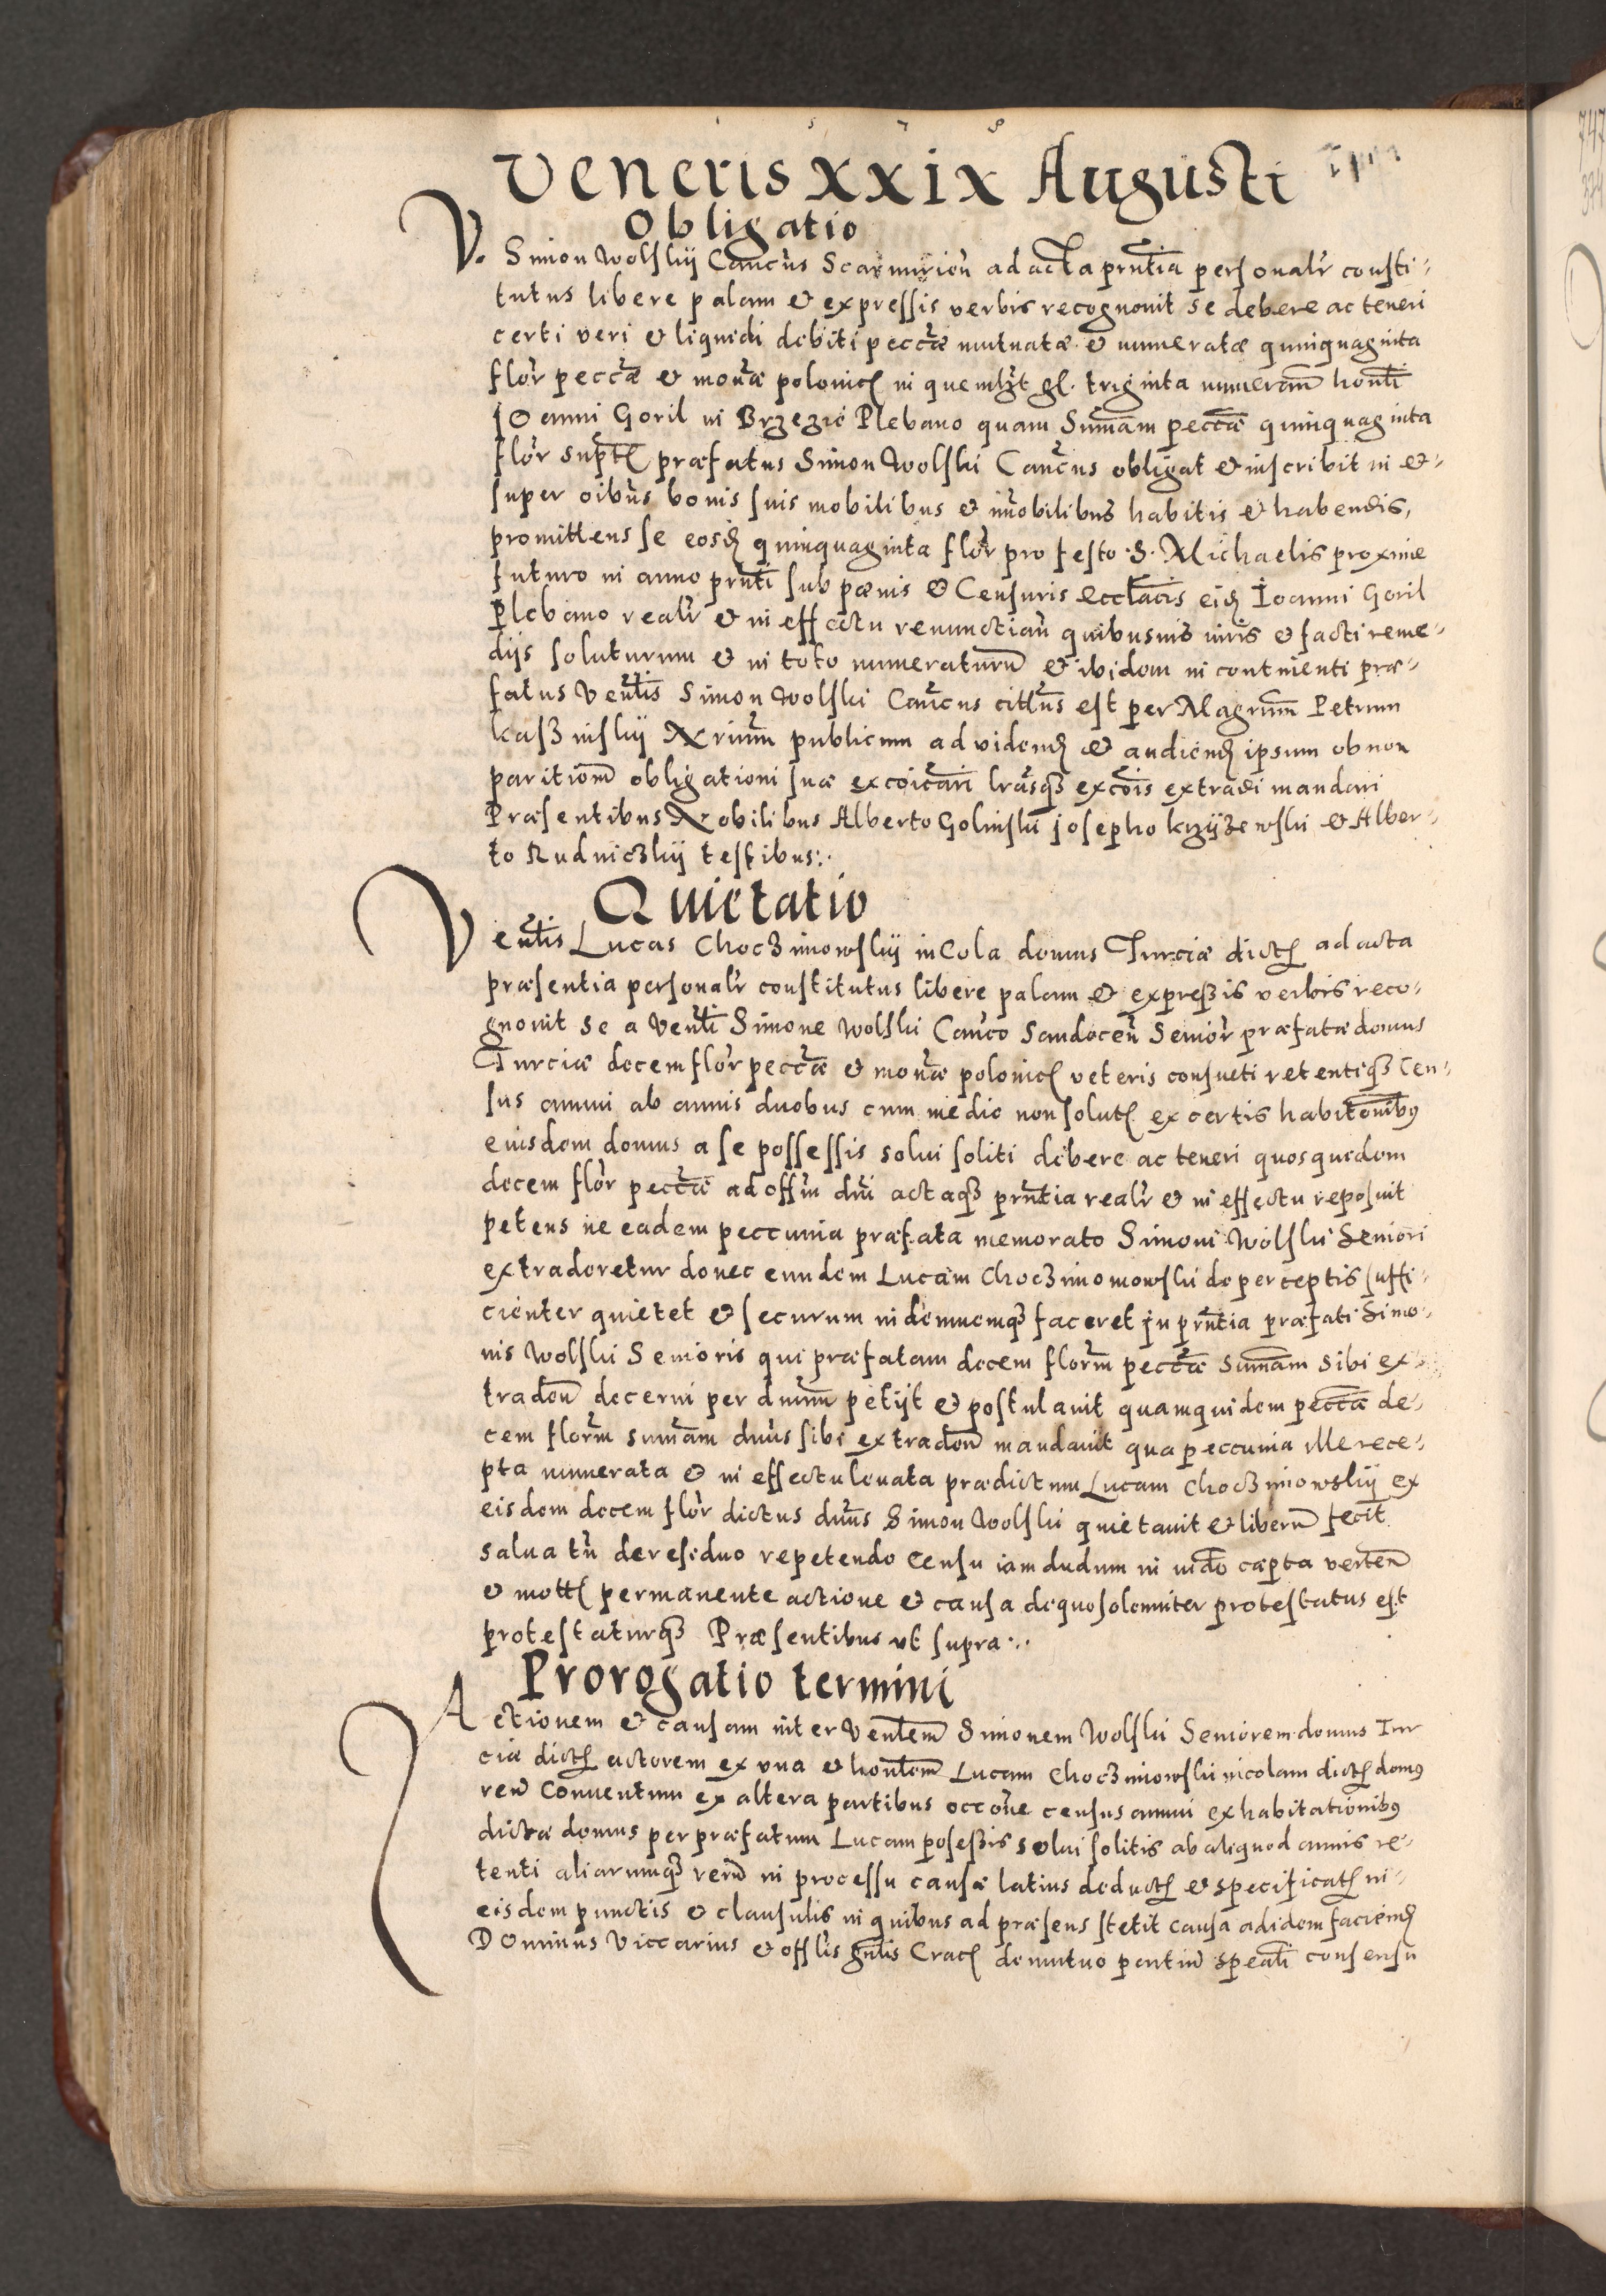 1 5 7 8
Veneris XXIX Augusti
Obligatio
V. Simon Wolskij Canc̃us Scarmirien̄ ad acta prn̄tia personalr̄ consti-
tutus libere palam & expressis verbis recognouit se debere ac teneri
certi veri & liquidi debiti pecc̃æ mutuatæ & numeratæ quinquaginta
flor̄ pecc̃æ & mon̄æ polonicꝭ in quemlꝫt gꝭ. triginta numeran̄ hon̄li
Joanni Goril in Brzezie Plebano quam Sum̃am pecc̃æ quinquaginta
flor̄ supt̄ꝭ præfatus Simon Wolski Canc̃us obligat & inscribit in &
super oib̃us bonis suis mobilibus & im̃obilibus habitis & habendis,
promittens se eosdꝭ quinquaginta flor̄ pro festo S. Michaelis proxime
futuro in anno prn̄ti sub pœnis & Censuris eccl̄acis eidꝭ Ioanni Goril
Plebano realr̄ & in effectu renunctian̄ quibusuis iuris & facti reme-
dijs soluturum & in toto numeraturū & ibidem in continenti præ-
fatus Ven̄lis Simon Wolski Canc̃us citt̄us est per Magr̄um Petrum
Kasz inskij Nr̄ium publicum ad videndꝭ & audiendꝭ ipsum ob non
paritiom̄ obligationi suæ excoic̃ari lr̄asqꝫ excõis extradi mandari
Præsentibus Nobilibus Alberto Golinski josepho krzyżewski & Alber-
to Rudniczkij testibus:.
Quietatio
Ven̄lis Lucas Choczimowskij inCola domus Jurciæ dictꝭ ad acta
præsentia personalr̄ constitutus libere palam & expreßis verbis reco-
gnouit se a Ven̄li Simone Wolski Canc̃o Sandocen̄ Senior̄ præfatæ domus
Jurciæ decem flor̄ pecc̃æ & mon̄æ polonicꝭ veteris consueti retentiqꝫ Cen-
sus annui ab annis duobus cum medio non solutꝭ ex certis habitōnibꝰ
eiusdem domus a se possessis solui soliti debere ac teneri quosquidem
decem flor̄ pecc̃æ ad offīn dn̄i actaqꝫ prn̄tia realr̄ & in effectu reposuit
petens ne eadem peccunia præfata memorato Simoni Wolski Seniori
extraderetur donec eundem Lucam Choczimomowski de perceptis suffi-
cienter quietet & securum indemnemqꝫ faceret Jn prn̄tia præfati Simo-
nis Wolski Senioris qui præfatam decem florm̄ pecc̃æ sum̃am sibi ex-
traden̄ decerni per dn̄um petijt & postulauit quamquidem pecc̃æ de-
cem florm̄ sum̃am dn̄us sibi extraden̄ mandauit qua peccunia ille rece-
pta numerata & in effectu leuata prædictum Lucam Choczimowskij ex
eisdem decem flor̄ dictus dn̄us Simon Wolski quietauit & liberū fecit
salua tn̄ de residuo repetendo censu iam dudum in iud̄o cæpta verten̄
& mott̄ꝭ permanente actione & causa de quo solemniter protestatus est
protestaturqꝫ Præsentibus vt supra:.
Prorogatio termini
Actionem & causam inter Ven̄lem Simonem Wolski Seniorem domus Iur
ciæ dictꝭ actorem ex vna & hon̄lem Lucam Choczimowski incolam dictꝭ domꝰ
reū Conuentum ex altera partibus occōne census annui ex habitationibꝰ
dictæ domus per præfatum Lucam poseßis solui solitis ab aliquod annis re-
tenti aliarumqꝫ rerū in processu causæ latius deductꝭ & specificatꝭ in
eisdem punctis & clausulis in quibus ad præsens stetit causa ad idem faciendꝭ
Dominus Viccarius & offl̄is gn̄lis Cracꝭ de mutuo partiū speāli consensu